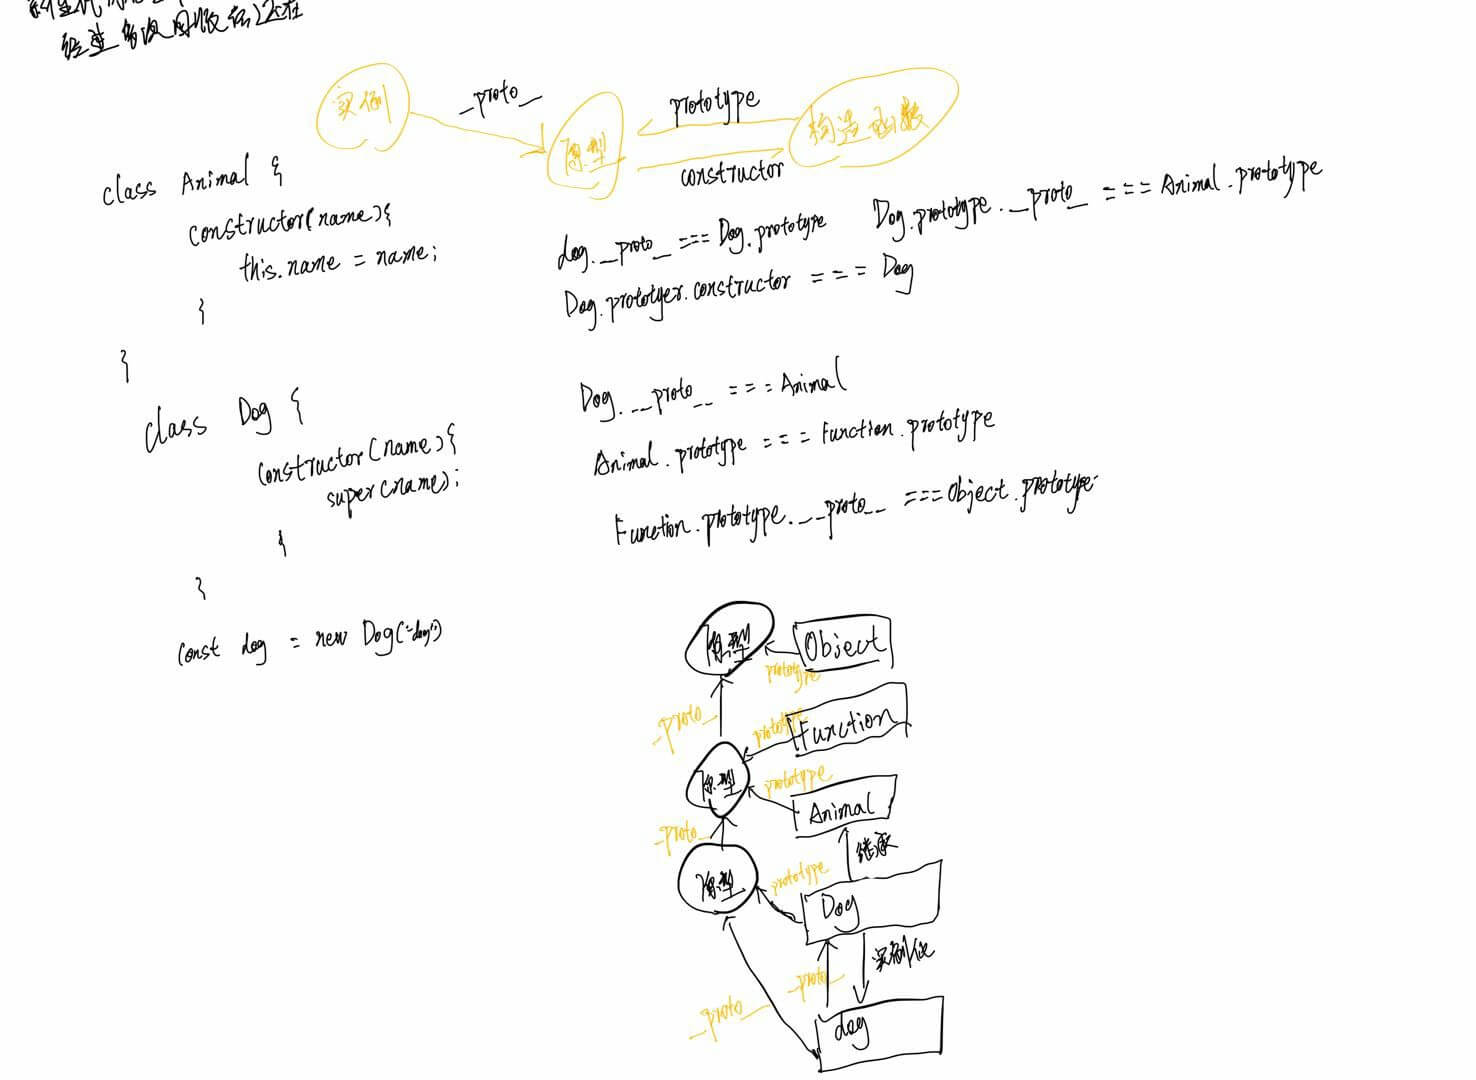 经过多次回收后还在
实例
_proto_
原型
prototype
constructor
构造函数
class Animal {
constructor(name){
this.name = name;
}
}
class Dog {
constructor(name){
super(name);
}
}
const dog = new Dog("dog")
dog.__proto_ === Dog.prototype
Dog.prototype.__proto_ === Animal.prototype
Dog.prototyer.constructor === Dog
Dog.__proto__ === Animal
Animal.prototype === Function.prototype
Function.prototype.__proto__ === Object.prototype
原型
Object
prototype
_proto_
prototype
Function
原型
prototype
Animal
_proto_
继承
原型
prototype
Dog
_proto_
实例化
_proto_
dog